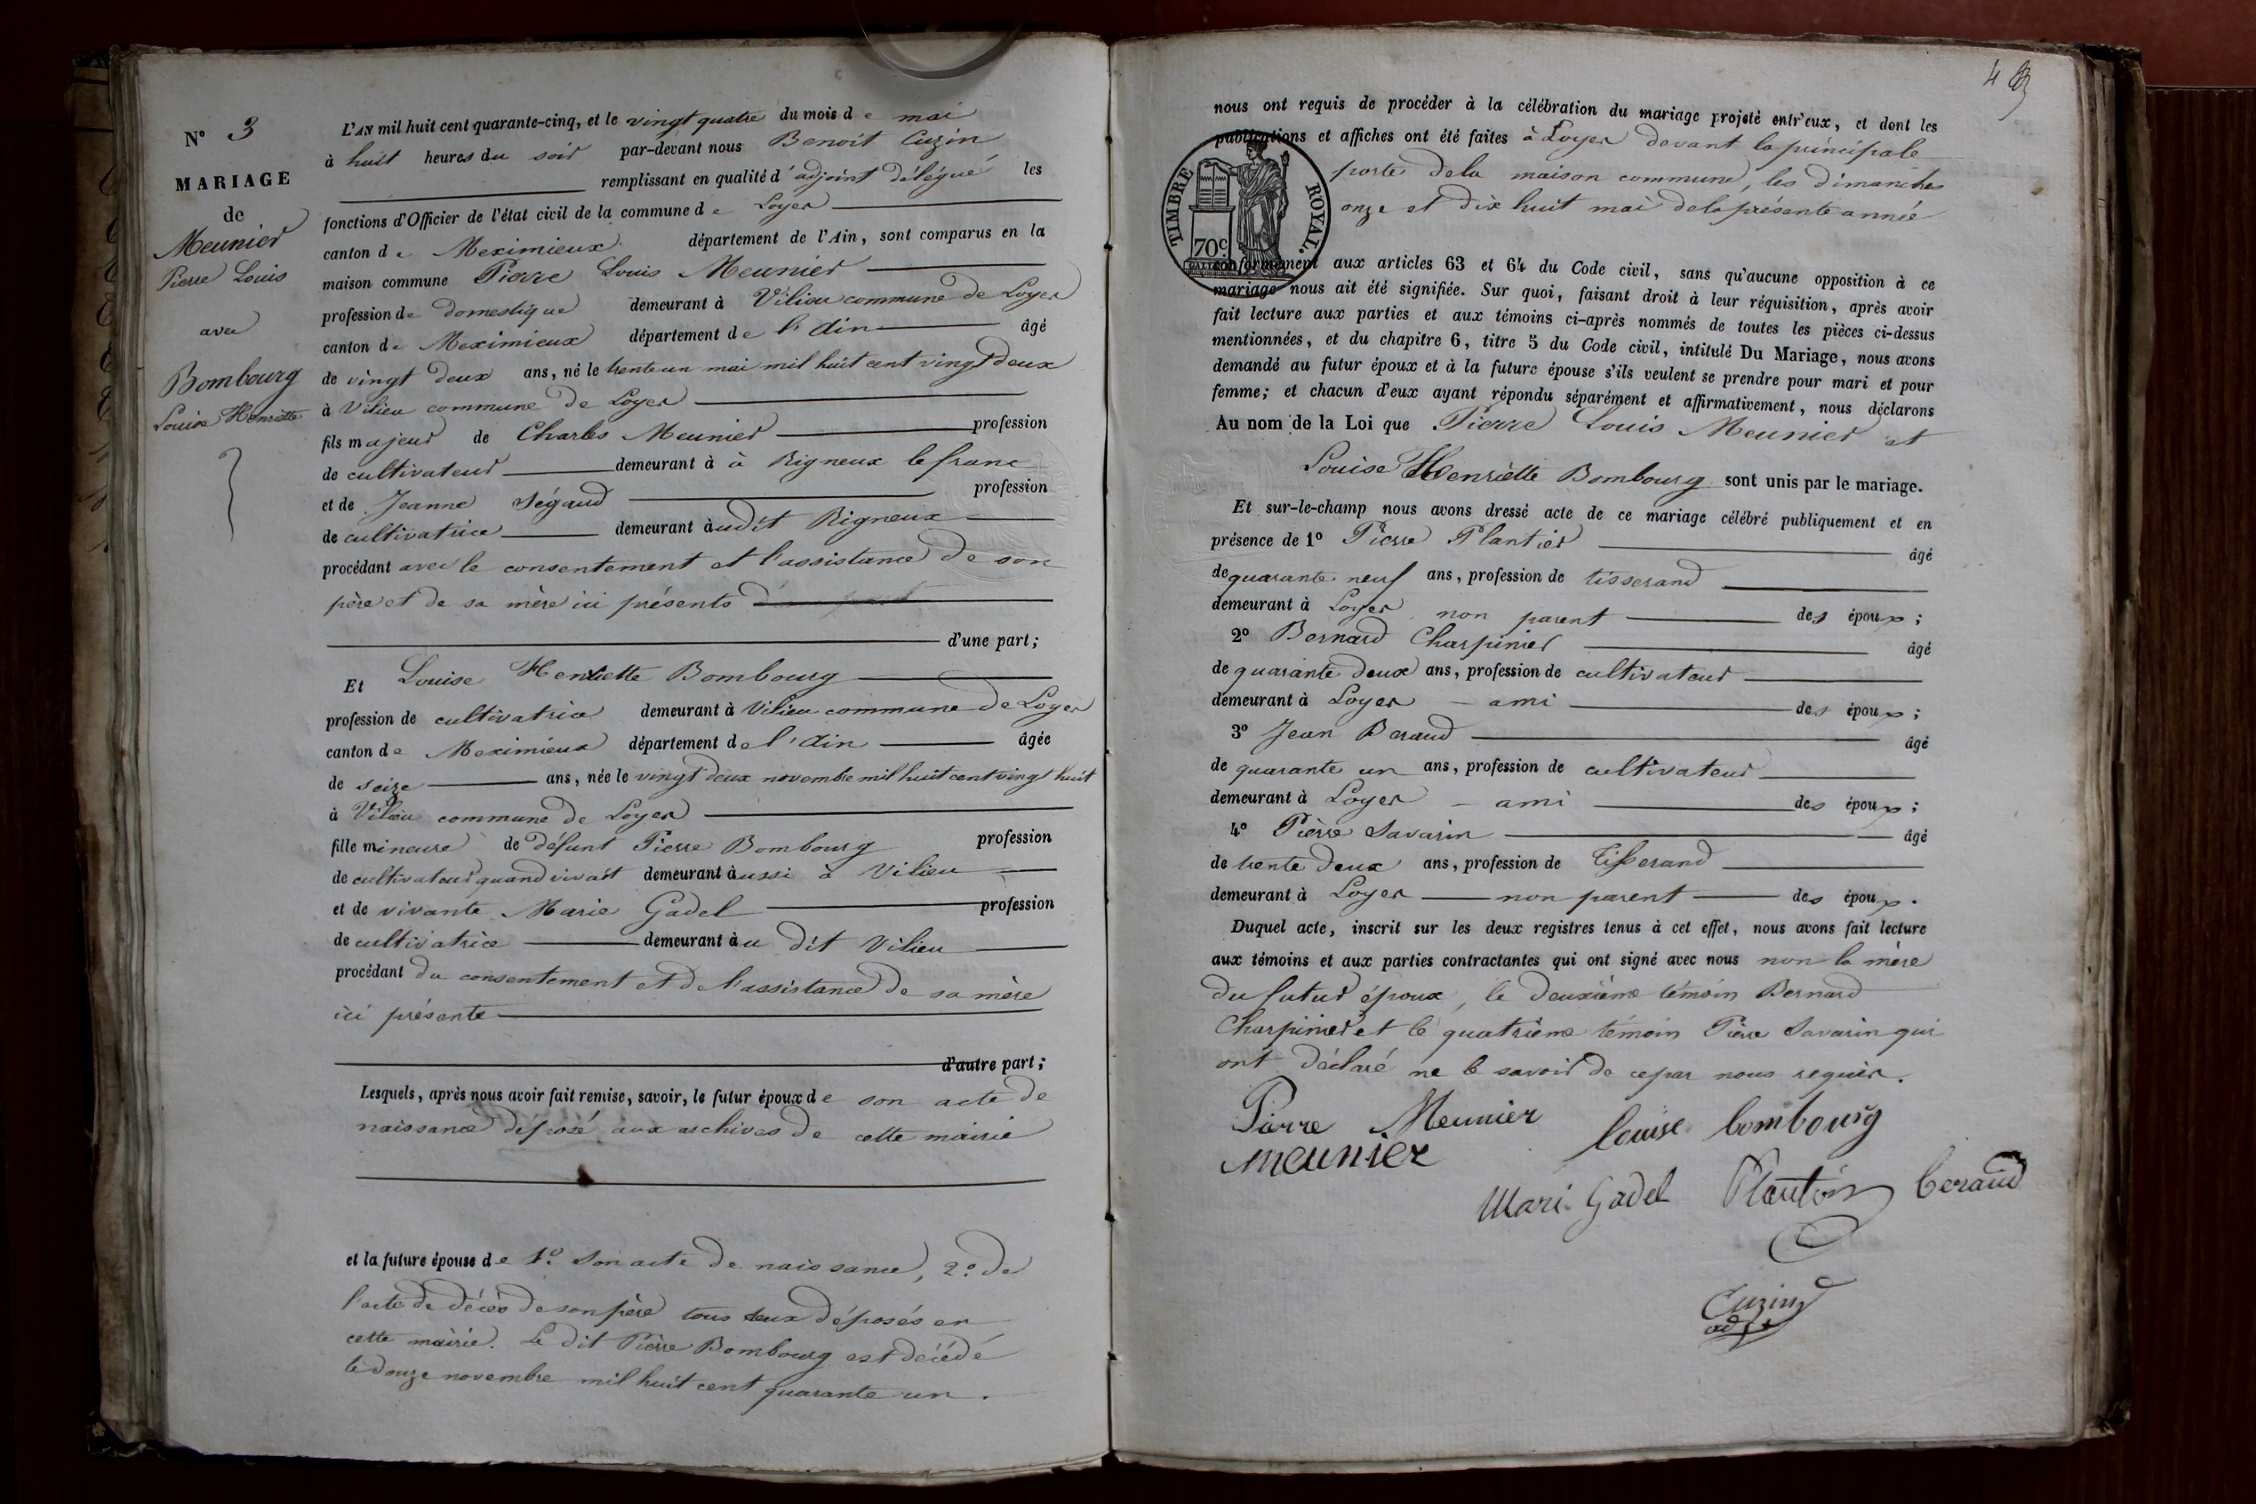 N° 3
MARIAGE
de
Meunier
Pierre Louis
avec
Bombourg
Louise Henriette
L'AN mil huit cent quarante-cinq, et le vingt quatre du mois de mai
à huit heures du soir par-devant nous Benoit Cuzin
remplissant en qualité d'adjoint délégué les
fonctions d'Officier de l'état civil de la commune de Loyes
canton de Meximieux département de l'Ain, sont comparus en la
maison commune Pierre Louis Meunier
profession de domestique demeurant à Vilieu commune de Loyes
canton de Meximieux département de l'Ain âgé
de vingt deux ans, né le trente un mai mil huit cent vingt deux
à Vilieu commune de Loyes
fils majeur de Charles Meunier profession
de cultivateur demeurant à à Rigneux le franc
et de Jeanne Ségaud profession
de cultivatrice demeurant àudit Rigneux
procédant avec le consentement et l'assistance de son
père et de sa mère ici présents
d'une part;
Et Louise Henriette Bombourg
profession de cultivatrice demeurant à Vilieu commune de Loyes
canton de Meximieux département de l'Ain âgée
de seize ans, née le vingt deux novembre mil huit cent vingt huit
à Vilieu commune de Loyes
fille mineure de défunt Pierre Bombourg profession
de cultivateur quand vivait demeurant àussi à Vilieu
et de vivante Marie Gadel profession
de cultivatrice demeurant àu dit Vilieu
procédant du consentement et de l'assistance de sa mère
ici présente
d'autre part;
Lesquels, après nous avoir fait remise, savoir, le futur époux de son acte de
naissance déposé aux archives de cette mairie
et la future épouse de 1° son acte de naissance, 2° de
l'acte de décès de son père tous deux déposés en
cette mairie. Le dit Pierre Bombourg est décédé
le douze novembre mil huit cent quarante un.
4
nous ont requis de procéder à la célébration du mariage projeté entr'eux, et dont les
publications et affiches ont été faites à Loyes devant la principale
porte de la maison commune, les dimanches
onze et dix huit mai de la présente année
TIMBRE ROYAL.
70c
conformément aux articles 63 et 64 du Code civil, sans qu'aucune opposition à ce
mariage nous ait été signifiée. Sur quoi, faisant droit à leur réquisition, après avoir
fait lecture aux parties et aux témoins ci-après nommés de toutes les pièces ci-dessus
mentionnées, et du chapitre 6, titre 5 du Code civil, intitulé Du Mariage, nous avons
demandé au futur époux et à la future épouse s'ils veulent se prendre pour mari et pour
femme; et chacun d'eux ayant répondu séparément et affirmativement, nous déclarons
Au nom de la Loi que Pierre Louis Meunier et
Louise Henriette Bombourg sont unis par le mariage.
Et sur-le-champ nous avons dressé acte de ce mariage célébré publiquement et en
présence de 1° Pierre Plantier âgé
de quarante neuf ans, profession de tisserand
demeurant à Loyes non parent des époux;
2° Bernard Charpinier âgé
de quarante deux ans, profession de cultivateur
demeurant à Loyes - ami des époux;
3° Jean Beraud âgé
de quarante un ans, profession de cultivateur
demeurant à Loyes - ami des époux;
4° Pierre Savarin âgé
de trente deux ans, profession de tisserand
demeurant à Loyes non parent des époux.
Duquel acte, inscrit sur les deux registres tenus à cet effet, nous avons fait lecture
aux témoins et aux parties contractantes qui ont signé avec nous non la mère
du futur époux, le deuxième témoin Bernard
Charpinier et le quatrième témoin Pierre Savarin qui
ont déclaré ne le savoir de ce par nous requis.
Pierre Meunier
meunier
louise bombourg
Mari Gadel Plantier beraud
Cuzin
adjt